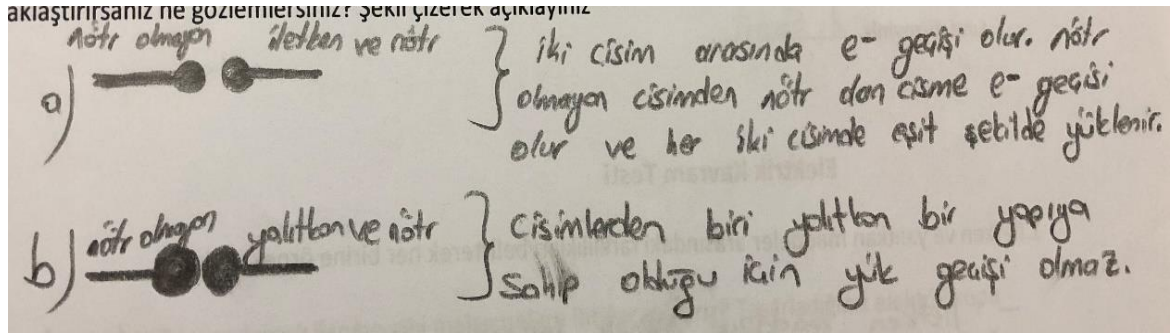 aklaştırırsanız ne gözlemlersiniz? Şekil çizerek açıklayınız
nötr olmayan iletken ve nötr
a)
iki cisim arasında e- geçişi olur. nötr
olmayan cisimden nötr olan cisme e- geçişi
olur ve her iki cisimde eşit şekilde yüklenir.
nötr olmayan yalıtkan ve nötr
b)
Cisimlerden biri yalıtkan bir yapıya
sahip olduğu için yük geçişi olmaz.
Elektrik Kavram Testi